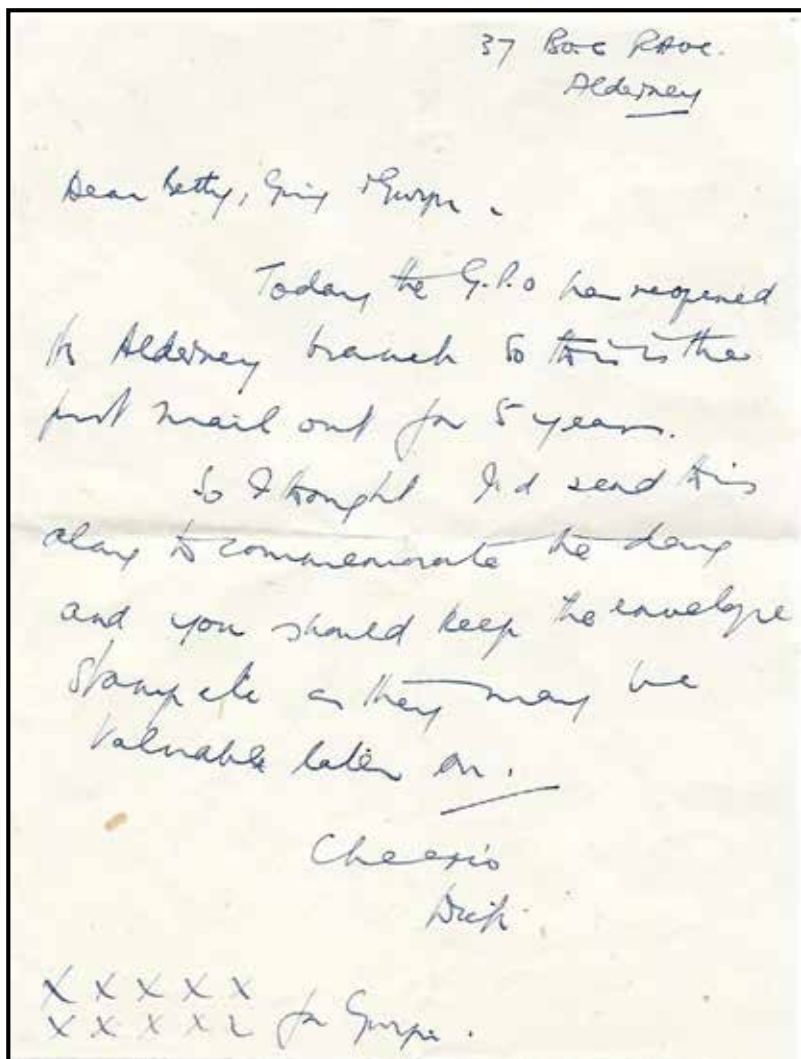 37
Alderney
Dear Betty,
Today the G.P.O has reopened
its Alderney branch so this is the
first mail out for 5 years.
So I thought I'd send this
along to commemorate the day
and you should keep the envelope
stamp etc as they may be
valuable later on.
Cheerio
Dick.
X X X X X
X X X X X for